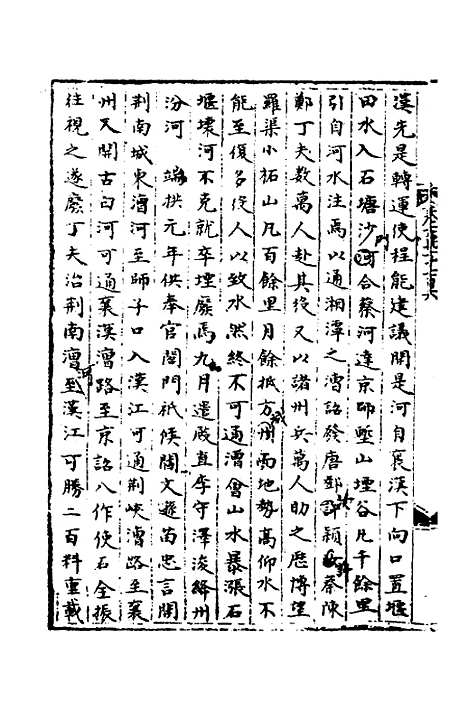 漢先是轉運使程能建議開是河自襄漢下向口置堰
田水入石塘沙河合蔡河達京師塹山堙谷凡千餘里
引自河水注焉以通湘潭之漕詔發唐鄧許潁蔡陳
鄭丁夫數萬人赴其役又以諸州兵萬人助之歷博望
羅渠小祏山凡百餘里月餘抵方城而地勢高仰水不
能至復多役人以致水然終不可通漕會山水暴漲石
堰壞河不克就卒堙廢焉九月遣殿直李守澤浚絳州
汾河 端拱元年供奉官閤門祗候閻文遜苗忠言開
荆南城東漕河至師子口入漢江可通荆峽漕路至襄
州又開古白河可通襄漢漕路至京詔八作使石全振
往視之遂廢丁夫治荆南漕河至漢江可勝二百料重載